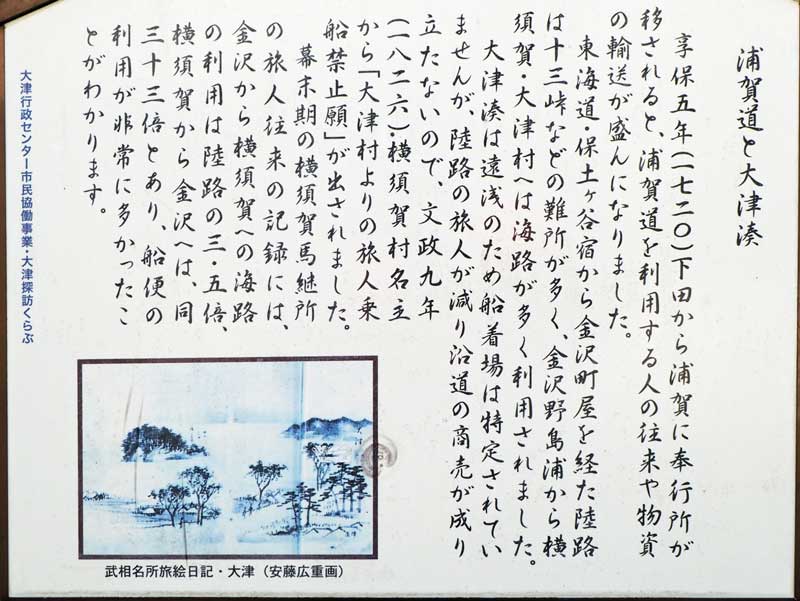 浦賀道と大津湊
享保五年(一七二〇)下田から浦賀に奉行所が
移されると、浦賀道を利用する人の往来や物資
の輸送が盛んになりました。
東海道・保土ヶ谷宿から金沢町屋を経た陸路
は十三峠などの難所が多く、金沢野島浦から横
須賀・大津村へは海路が多く利用されました。
大津湊は遠浅のため船着場は特定されてい
ませんが、陸路の旅人が減り沿道の商売が成り
立たないので、文政九年
(一八二六)横須賀村名主
から「大津村よりの旅人乗
船禁止願」が出されました。
幕末期の横須賀馬継所
の旅人往来の記録には、
金沢から横須賀への海路
の利用は陸路の三・五倍、
横須賀から金沢へは、同
三十三倍とあり、船便の
利用が非常に多かったこ
とがわかります。
大津行政センター市民協働事業・大津探訪くらぶ
武相名所旅絵日記・大津(安藤広重画)